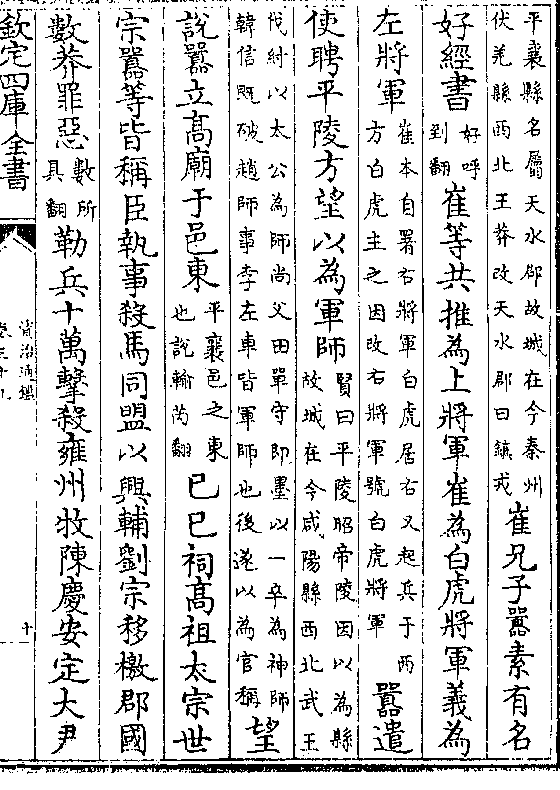 平襄縣名屬天水郡故城在今秦州
伏羌縣西北王莽改天水郡曰鎮戎
崔兄子囂素有名
好經書
好呼
到翻
崔等共推為上將軍崔為白虎將軍義為
左將軍
崔本自署右將軍白虎居右又起兵于西
方白虎主之因改右將軍號白虎將軍
囂遣
使聘平陵方望以為軍師
賢曰平陵昭帝陵因以為縣
故城在今咸陽縣西北武王
伐紂以太公為師尚父田單守即墨以一卒為神師
韓信既破趙師事李左車皆軍師也後遂以為官稱
望
說囂立高廟于邑東
平襄邑之東
也說輸芮翻
己巳祠高祖太宗世
宗囂等皆稱臣執事殺馬同盟以興輔劉宗移檄郡國
數莽罪惡
數所
具翻
勒兵十萬擊殺雍州牧陳慶安定大尹
欽定四庫全書
資治通鑑
卷三十九
十